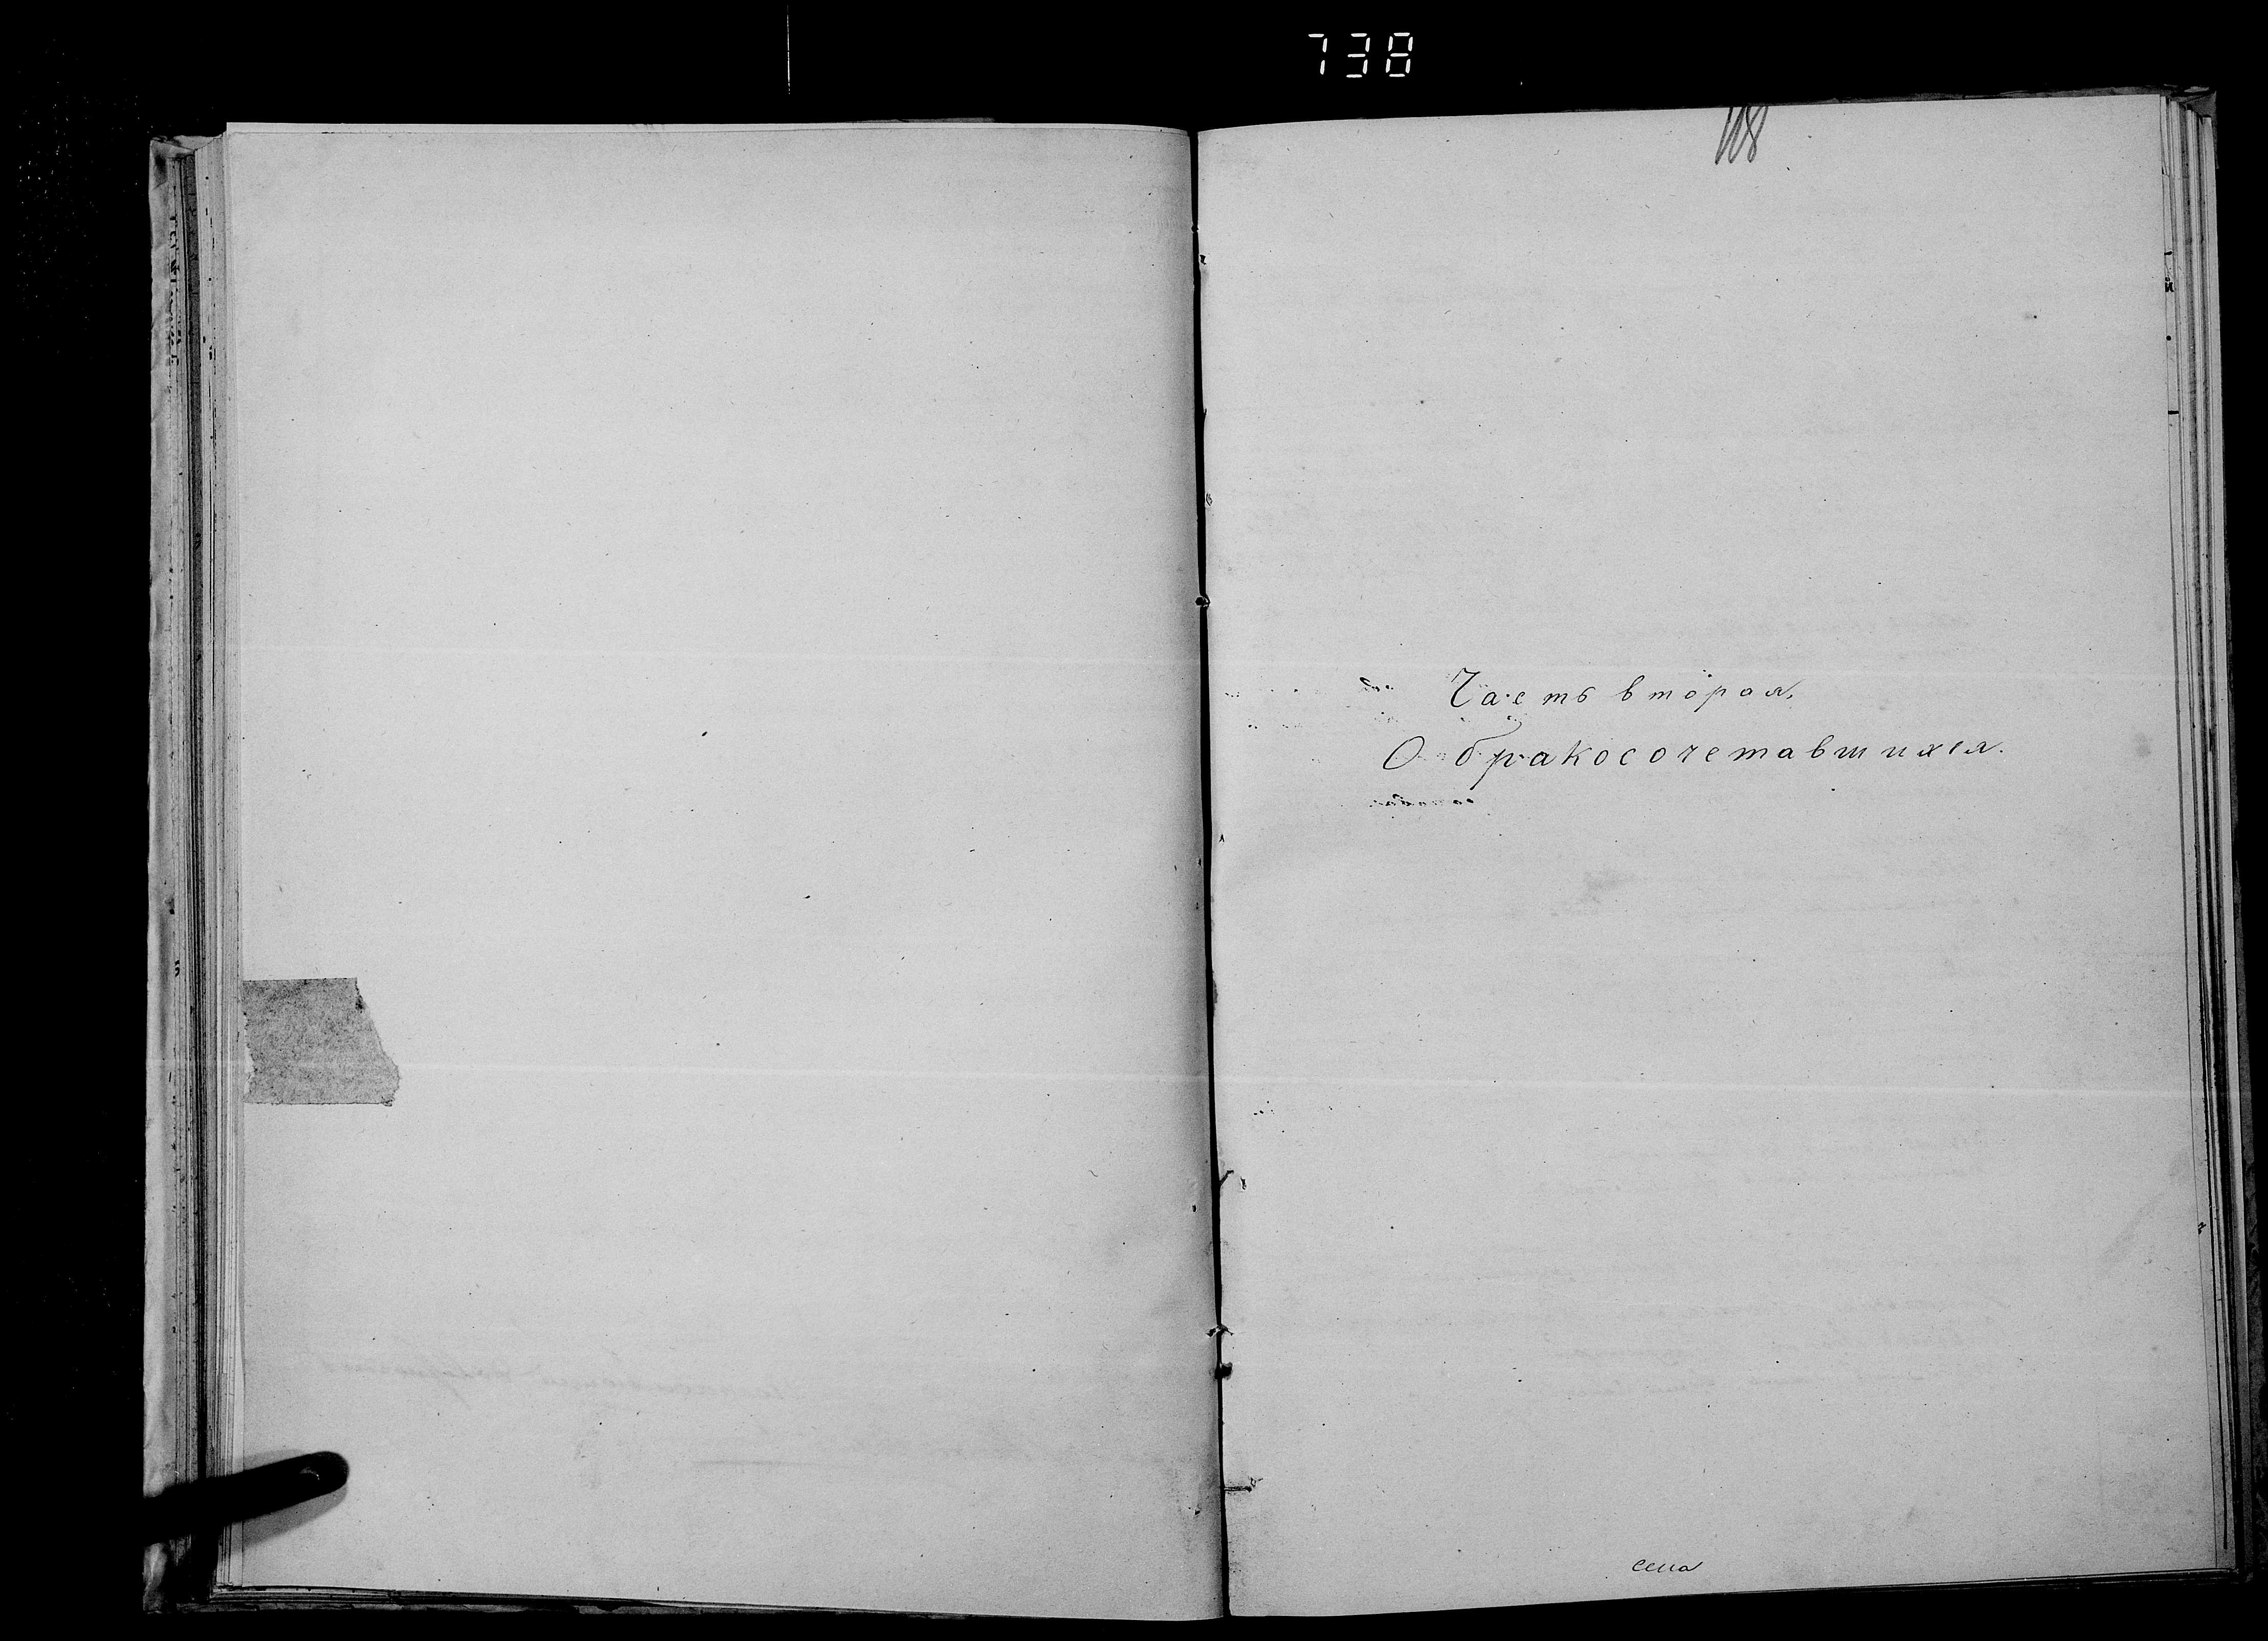 738
118
Часть вторая,
О бракосочетавшихся.
села